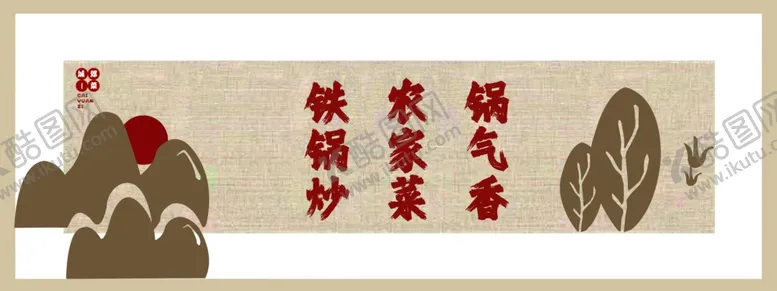 铁锅炒
农家菜
锅气香
CAI
YUAN
EI
酷图网
www.ikutu.com